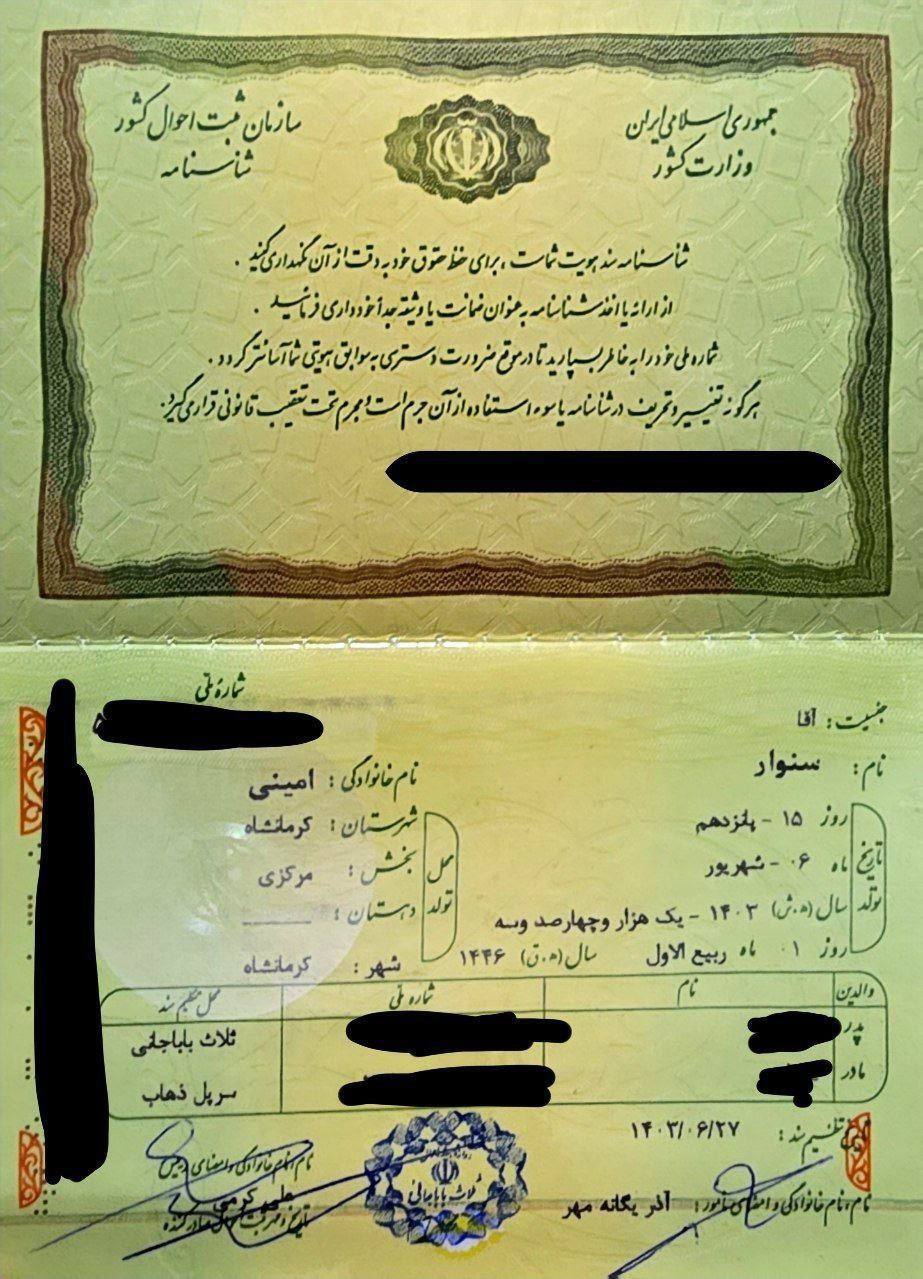 جمهوری اسلامی ایران
وزارت کشور
سازمان ثبت احوال کشور
شناسنامه
شناسنامه سند هویت شماست ، برای حفظ حقوق خود به دقت از آن نگهداری کنید .
از ارائه یا اخذ شناسنامه به عنوان ضمانت یا وثیقه جداً خودداری فرمائید .
شماره ملی خود را به خاطر بسپارید تا در موقع ضرورت دسترسی به سوابق هویتی شما آسانتر گردد .
هر گونه تغییر و تحریف در شناسنامه یا سوء استفاده از آن جرم است و مجرم تحت تعقیب قانونی قرار می گیرد .
شماره ملی
جنسیت : آقا
نام : سنوار
نام خانوادگی : امینی
تاریخ تولد
روز ۱۵ - پانزدهم
ماه ۰۶ - شهریور
سال (ه.ش) ۱۴۰۳ - یک هزار و چهارصد و سه
روز ۰۱ ماه ربیع الاول سال (ه.ق) ۱۴۴۶
محل تولد
شهرستان : کرمانشاه
بخش : مرکزی
دهستان : ـــــــــ
شهر : کرمانشاه
والدین نام شماره ملی محل تنظیم سند
پدر ثلاث باباجانی
مادر سرپل ذهاب
تاریخ تنظیم سند : ۱۴۰۳/۰۶/۲۷
نام و نام خانوادگی و امضای مأمور : آذر یگانه مهر
نام و نام خانوادگی و امضای رئیس
علی کرمی
ثلاث باباجانی